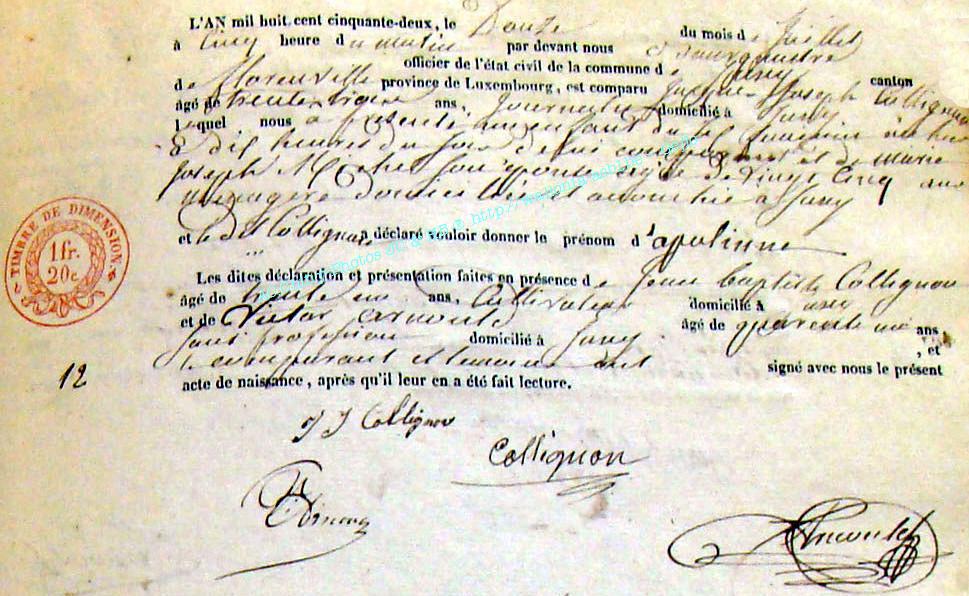 L'AN mil huit cent cinquante-deux, le Douze du mois de Juillet
à Cinq heure du matin par devant nous Bourgmestre
officier de l'état civil de la commune de
de Florenville province de Luxembourg, est comparu Jacques Joseph Collignon canton
âgé de trente trois ans, Journalier domicilié à
lequel nous a présenté un enfant du sexe féminin née hier
à dix heures du soir de lui comparant et de Marie
Joseph Michel son épouse âgée de vingt cinq ans
ménagère domiciliée et accouchée à
et le dit Collignon a déclaré vouloir donner le prénom d'apolinne
Les dites déclaration et présentation faites en présence de Jean Baptiste Collignon
âgé de trente un ans, Cultivateur domicilié à
et de Victor arnould âgé de quarente un ans,
sans profession domicilié à , et
le comparant et temoins ont signé avec nous le présent
acte de naissance, après qu'il leur en a été fait lecture.
TIMBRE DE DIMENSION
1 fr.
20 c.
12
J J Collignon
Collignon